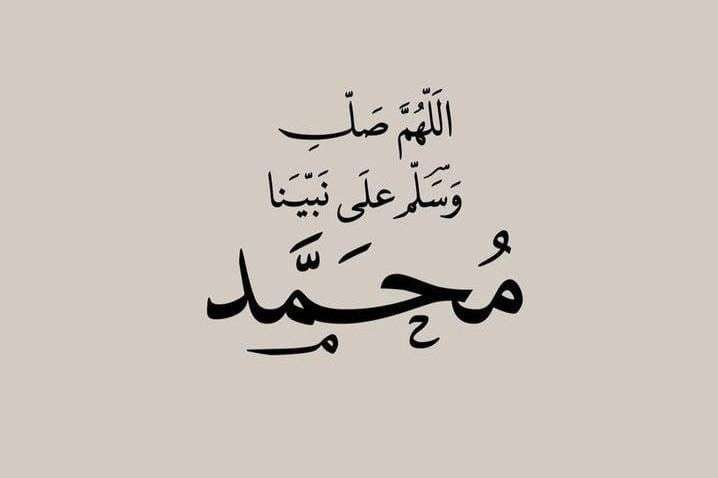 اللَّهُمَّ صَلِّ
وَسَلِّم علَى نَبيِّنَا
مُحَمَّد